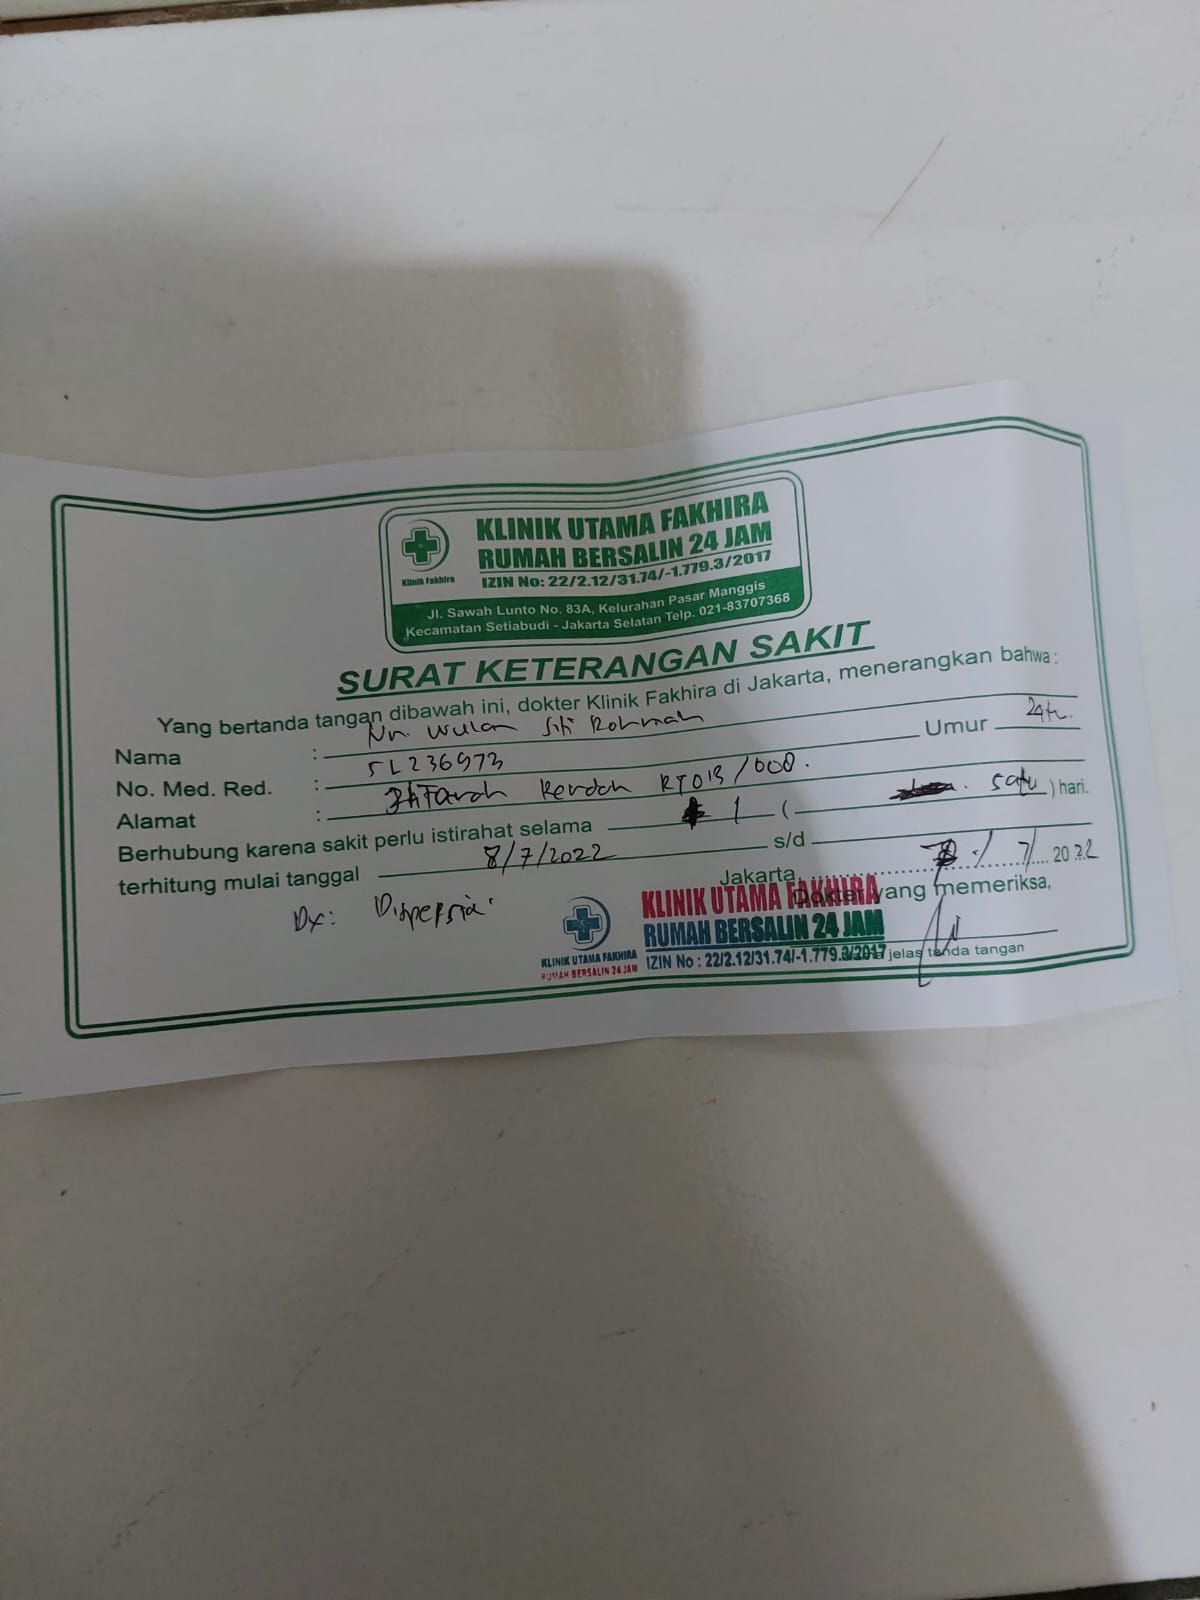 Klinik Fakhira
KLINIK UTAMA FAKHIRA
RUMAH BERSALIN 24 JAM
IZIN No: 22/2.12/31.74/-1.779.3/2017
Jl. Sawah Lunto No. 83A, Kelurahan Pasar Manggis
Kecamatan Setiabudi - Jakarta Selatan Telp. 021-83707368
SURAT KETERANGAN SAKIT
Yang bertanda tangan dibawah ini, dokter Klinik Fakhira di Jakarta, menerangkan bahwa :
Nama : Nn. Wulan Siti Rohmah Umur 24 th.
No. Med. Red. : SL236973
Alamat : Rendah RT013/008.
Berhubung karena sakit perlu istirahat selama 1 ( satu ) hari.
terhitung mulai tanggal 8/7/2022 s/d
Jakarta, /7/ 2022
Dx: Dispepsia
Dokter yang memeriksa,
jelas tanda tangan
KLINIK UTAMA FAKHIRA
RUMAH BERSALIN 24 JAM
KLINIK UTAMA FAKHIRA
RUMAH BERSALIN 24 JAM
IZIN No : 22/2.12/31.74/-1.779.3/2017